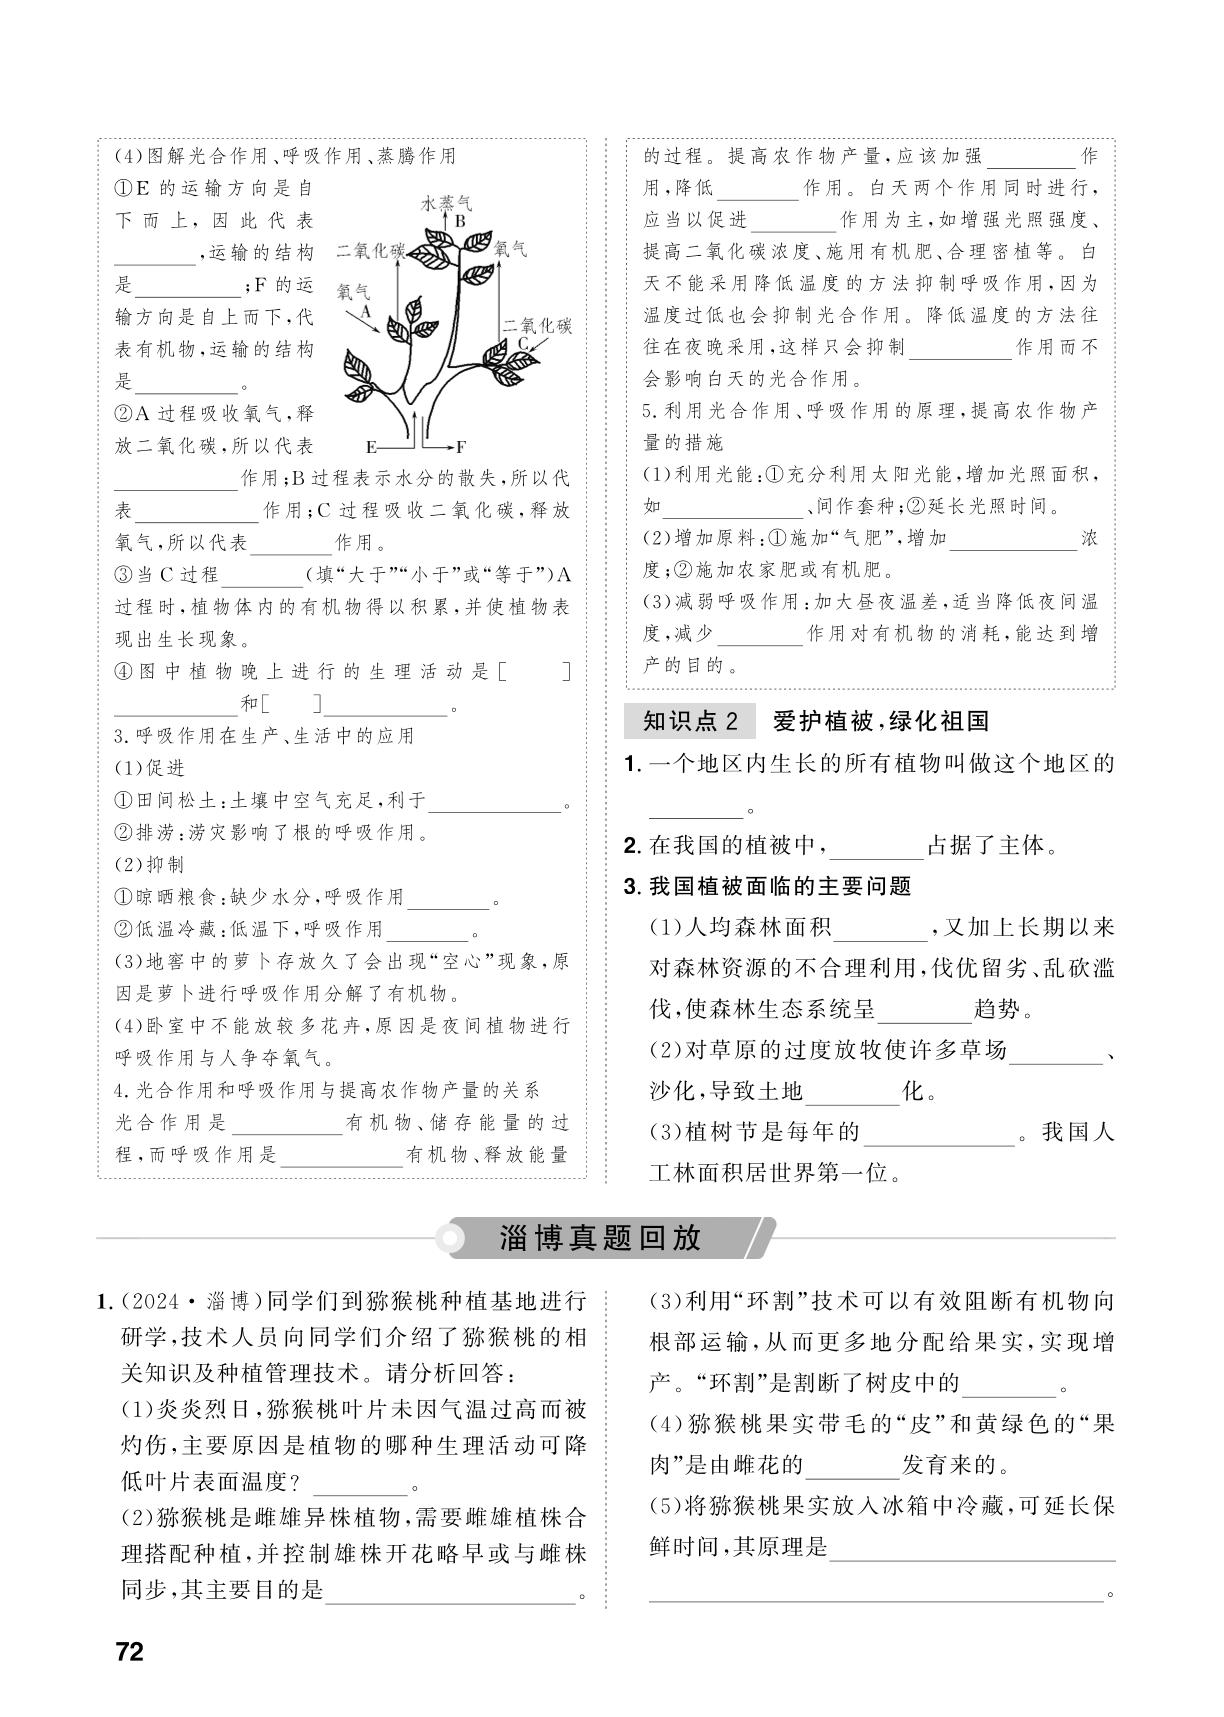 (4)图解光合作用、呼吸作用、蒸腾作用
①E 的运输方向是自
下而上，因此代表
________，运输的结构
是__________；F 的运
输方向是自上而下，代
表有机物，运输的结构
是__________。
②A 过程吸收氧气，释
放二氧化碳，所以代表
____________作用；B过程表示水分的散失，所以代
表____________作用；C 过程吸收二氧化碳，释放
氧气，所以代表________作用。
③当 C 过程________(填“大于”“小于”或“等于”)A
过程时，植物体内的有机物得以积累，并使植物表
现出生长现象。
④图中植物晚上进行的生理活动是[　　]
____________和[　　]____________。
水蒸气
B
二氧化碳
氧气
氧气
A
二氧化碳
C
E
F
3. 呼吸作用在生产、生活中的应用
(1)促进
①田间松土：土壤中空气充足，利于____________。
②排涝：涝灾影响了根的呼吸作用。
(2)抑制
①晾晒粮食：缺少水分，呼吸作用________。
②低温冷藏：低温下，呼吸作用________。
(3)地窖中的萝卜存放久了会出现“空心”现象，原
因是萝卜进行呼吸作用分解了有机物。
(4)卧室中不能放较多花卉，原因是夜间植物进行
呼吸作用与人争夺氧气。
4. 光合作用和呼吸作用与提高农作物产量的关系
光合作用是__________有机物、储存能量的过
程，而呼吸作用是____________有机物、释放能量
的过程。提高农作物产量，应该加强________作
用，降低________作用。白天两个作用同时进行，
应当以促进________作用为主，如增强光照强度、
提高二氧化碳浓度、施用有机肥、合理密植等。白
天不能采用降低温度的方法抑制呼吸作用，因为
温度过低也会抑制光合作用。降低温度的方法往
往在夜晚采用，这样只会抑制__________作用而不
会影响白天的光合作用。
5. 利用光合作用、呼吸作用的原理，提高农作物产
量的措施
(1)利用光能：①充分利用太阳光能，增加光照面积，
如______________、间作套种；②延长光照时间。
(2)增加原料：①施加“气肥”，增加____________浓
度；②施加农家肥或有机肥。
(3)减弱呼吸作用：加大昼夜温差，适当降低夜间温
度，减少________作用对有机物的消耗，能达到增
产的目的。
知识点 2　爱护植被，绿化祖国
1. 一个地区内生长的所有植物叫做这个地区的
________。
2. 在我国的植被中，________占据了主体。
3. 我国植被面临的主要问题
(1)人均森林面积________，又加上长期以来
对森林资源的不合理利用，伐优留劣、乱砍滥
伐，使森林生态系统呈________趋势。
(2)对草原的过度放牧使许多草场________、
沙化，导致土地________化。
(3)植树节是每年的____________。我国人
工林面积居世界第一位。
淄博真题回放
1. (2024・淄博)同学们到猕猴桃种植基地进行
研学，技术人员向同学们介绍了猕猴桃的相
关知识及种植管理技术。请分析回答：
(1)炎炎烈日，猕猴桃叶片未因气温过高而被
灼伤，主要原因是植物的哪种生理活动可降
低叶片表面温度？________。
(2)猕猴桃是雌雄异株植物，需要雌雄植株合
理搭配种植，并控制雄株开花略早或与雌株
同步，其主要目的是____________________。
(3)利用“环割”技术可以有效阻断有机物向
根部运输，从而更多地分配给果实，实现增
产。“环割”是割断了树皮中的________。
(4)猕猴桃果实带毛的“皮”和黄绿色的“果
肉”是由雌花的________发育来的。
(5)将猕猴桃果实放入冰箱中冷藏，可延长保
鲜时间，其原理是________________________
______________________________________。
72